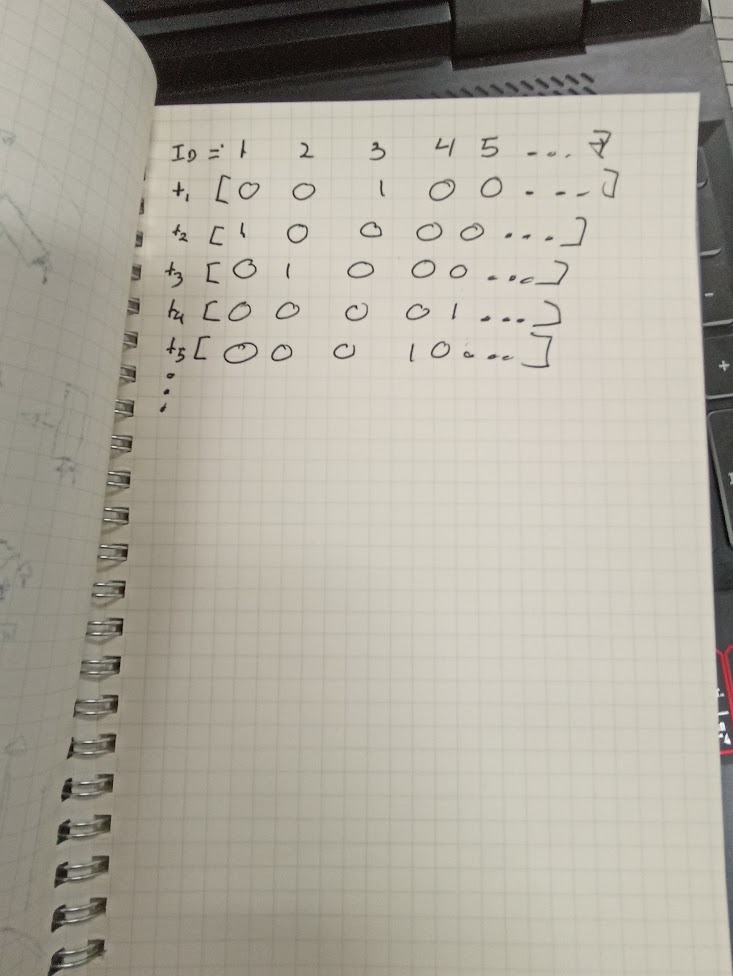 ID = 1 2 3 4 5 ... 7
t1 [ 0 0 1 0 0 . ... ]
t2 [ 1 0 0 0 0 ... ]
t3 [ 0 1 0 0 0 .... ]
t4 [ 0 0 0 0 1 ... ]
t5 [ 0 0 0 1 0 .... ]
⋮